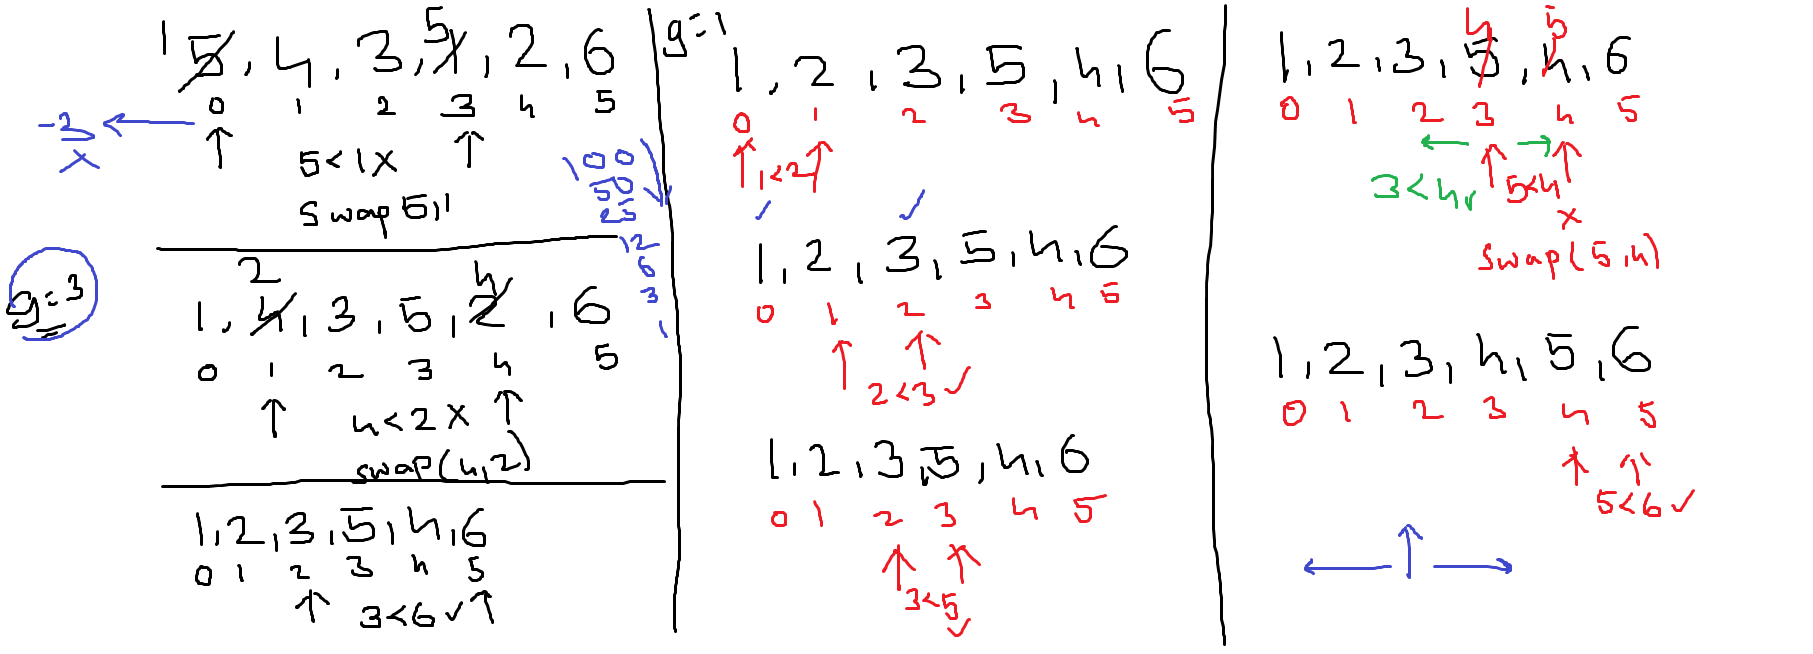 1 5, 4, 3, 5 1, 2, 6
0 1 2 3 4 5
-2
x
5<1 x
swap 5,1
100
50
25
12
6
3
1
g=3
2 4
1, 4, 3, 5, 2, 6
0 1 2 3 4 5
4<2 x
swap(4,2)
1,2,3,5,4,6
0 1 2 3 4 5
3<6 ✓
g=1
1, 2, 3, 5, 4, 6
0 1 2 3 4 5
1<2
✓ ✓
1, 2, 3, 5, 4, 6
0 1 2 3 4 5
2<3 ✓
1,2,3,5,4,6
0 1 2 3 4 5
3<5
✓
4 5
1,2,3,5,4,6
0 1 2 3 4 5
3<4✓ 5<4
x
swap(5,4)
1,2,3,4,5,6
0 1 2 3 4 5
5<6 ✓